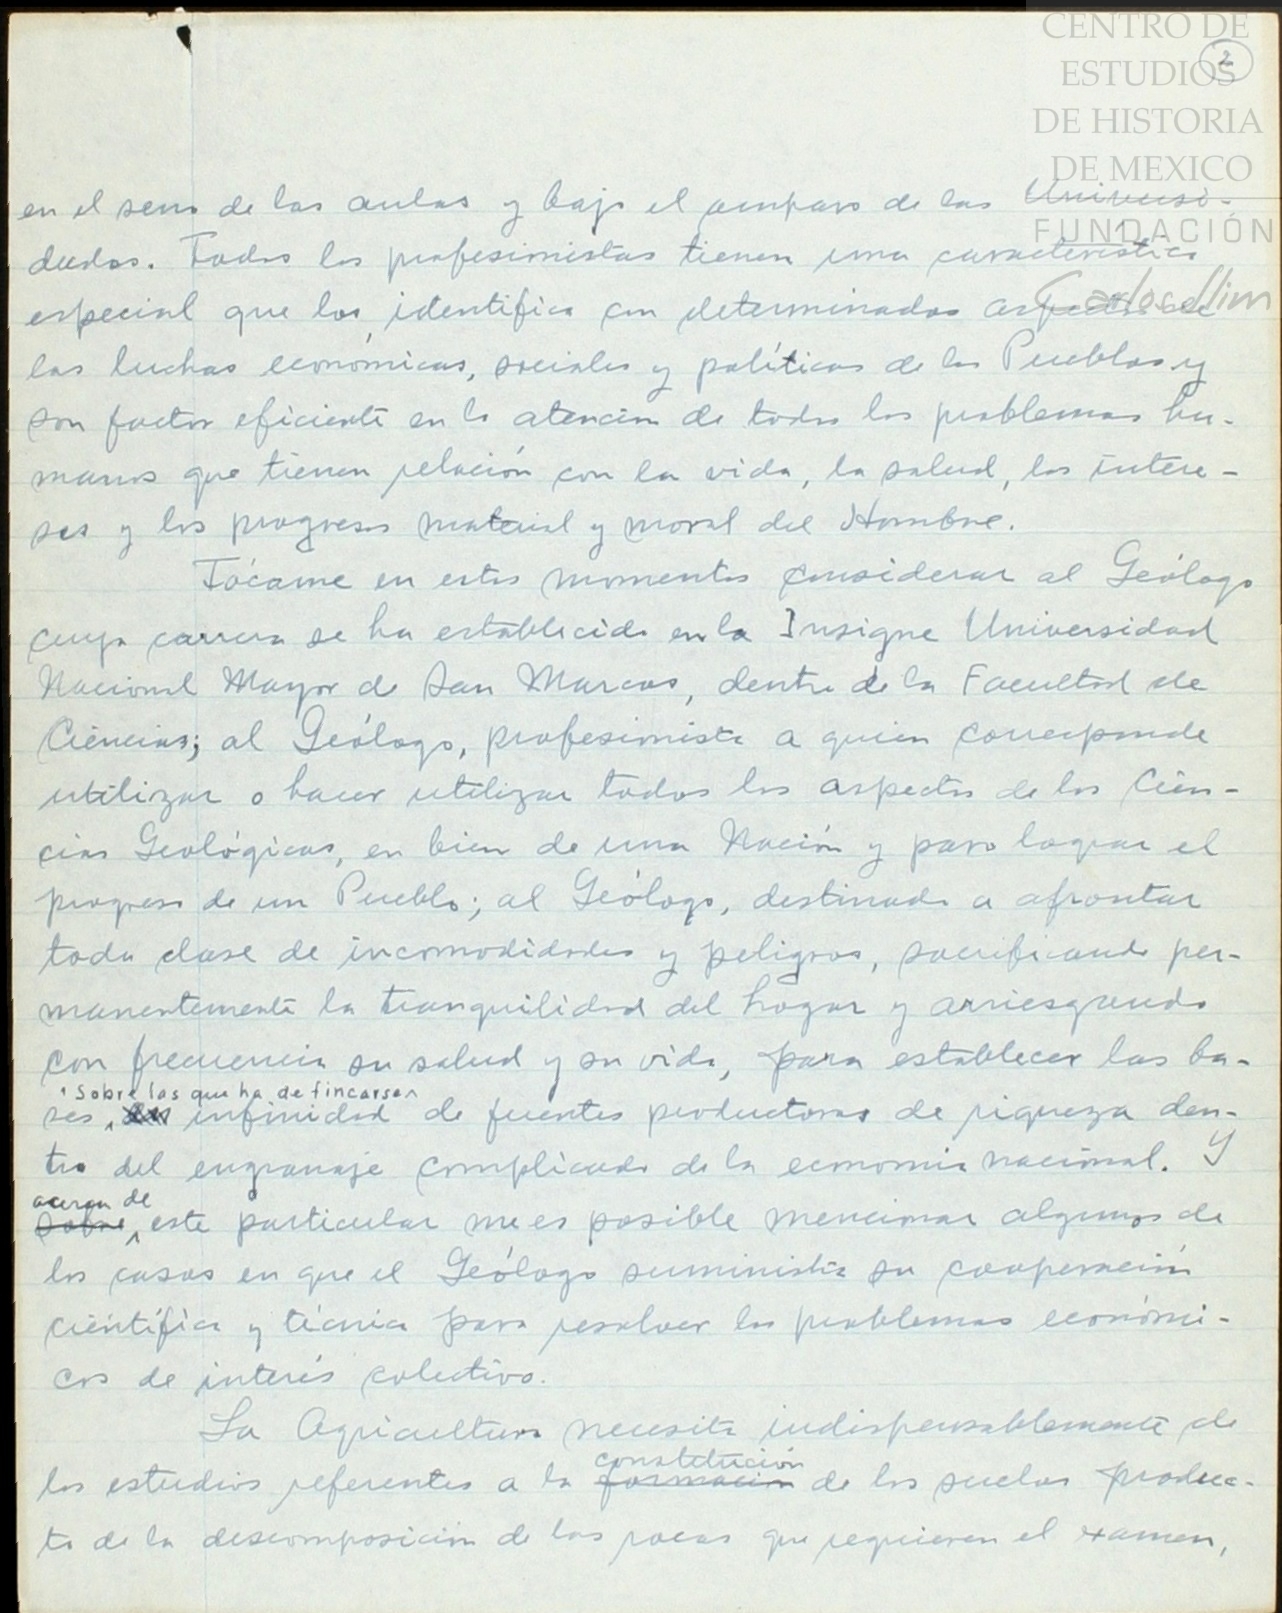 CENTRO DE
ESTUDIOS
DE HISTORIA
DE MEXICO
FUNDACIÓN
Carlos Slim
2
en el seno de las aulas y bajo el amparo de las Universi-
dades. Todos los profesionistas tienen una característica
especial que los identifica con determinados aspectos de
las luchas económicas, sociales y políticas de los Pueblos y
son factor eficiente en la atención de todos los problemas hu-
manos que tienen relación con la vida, la salud, los intere-
ses y los progresos material y moral del Hombre.
Tócame en estos momentos considerar al Geólogo
cuya carrera se ha establecido en la Insigne Universidad
Nacional Mayor de San Marcos, dentro de la Facultad de
Ciencias; al Geólogo, profesionista a quien corresponde
utilizar o hacer utilizar todos los aspectos de las Cien-
cias Geológicas, en bien de una Nación y para lograr el
progreso de un Pueblo; al Geólogo, destinado a afrontar
toda clase de incomodidades y peligros, sacrificando per-
manentemente la tranquilidad del hogar y arriesgando
con frecuencia su salud y su vida, para establecer las ba-
sobre las que ha de fincarse
ses, infinidad de fuentes productoras de riqueza den-
tro del engranaje complicado de la economía nacional. Y
acerca de
sobre este particular me es posible mencionar algunos de
los casos en que el Geólogo suministra su cooperación
científica y técnica para resolver los problemas económi-
cos de interés colectivo.
La Agricultura necesita indispensablemente de
constitución
los estudios referentes a la formación de los suelos produc-
to de la descomposición de las rocas que requieren el examen,